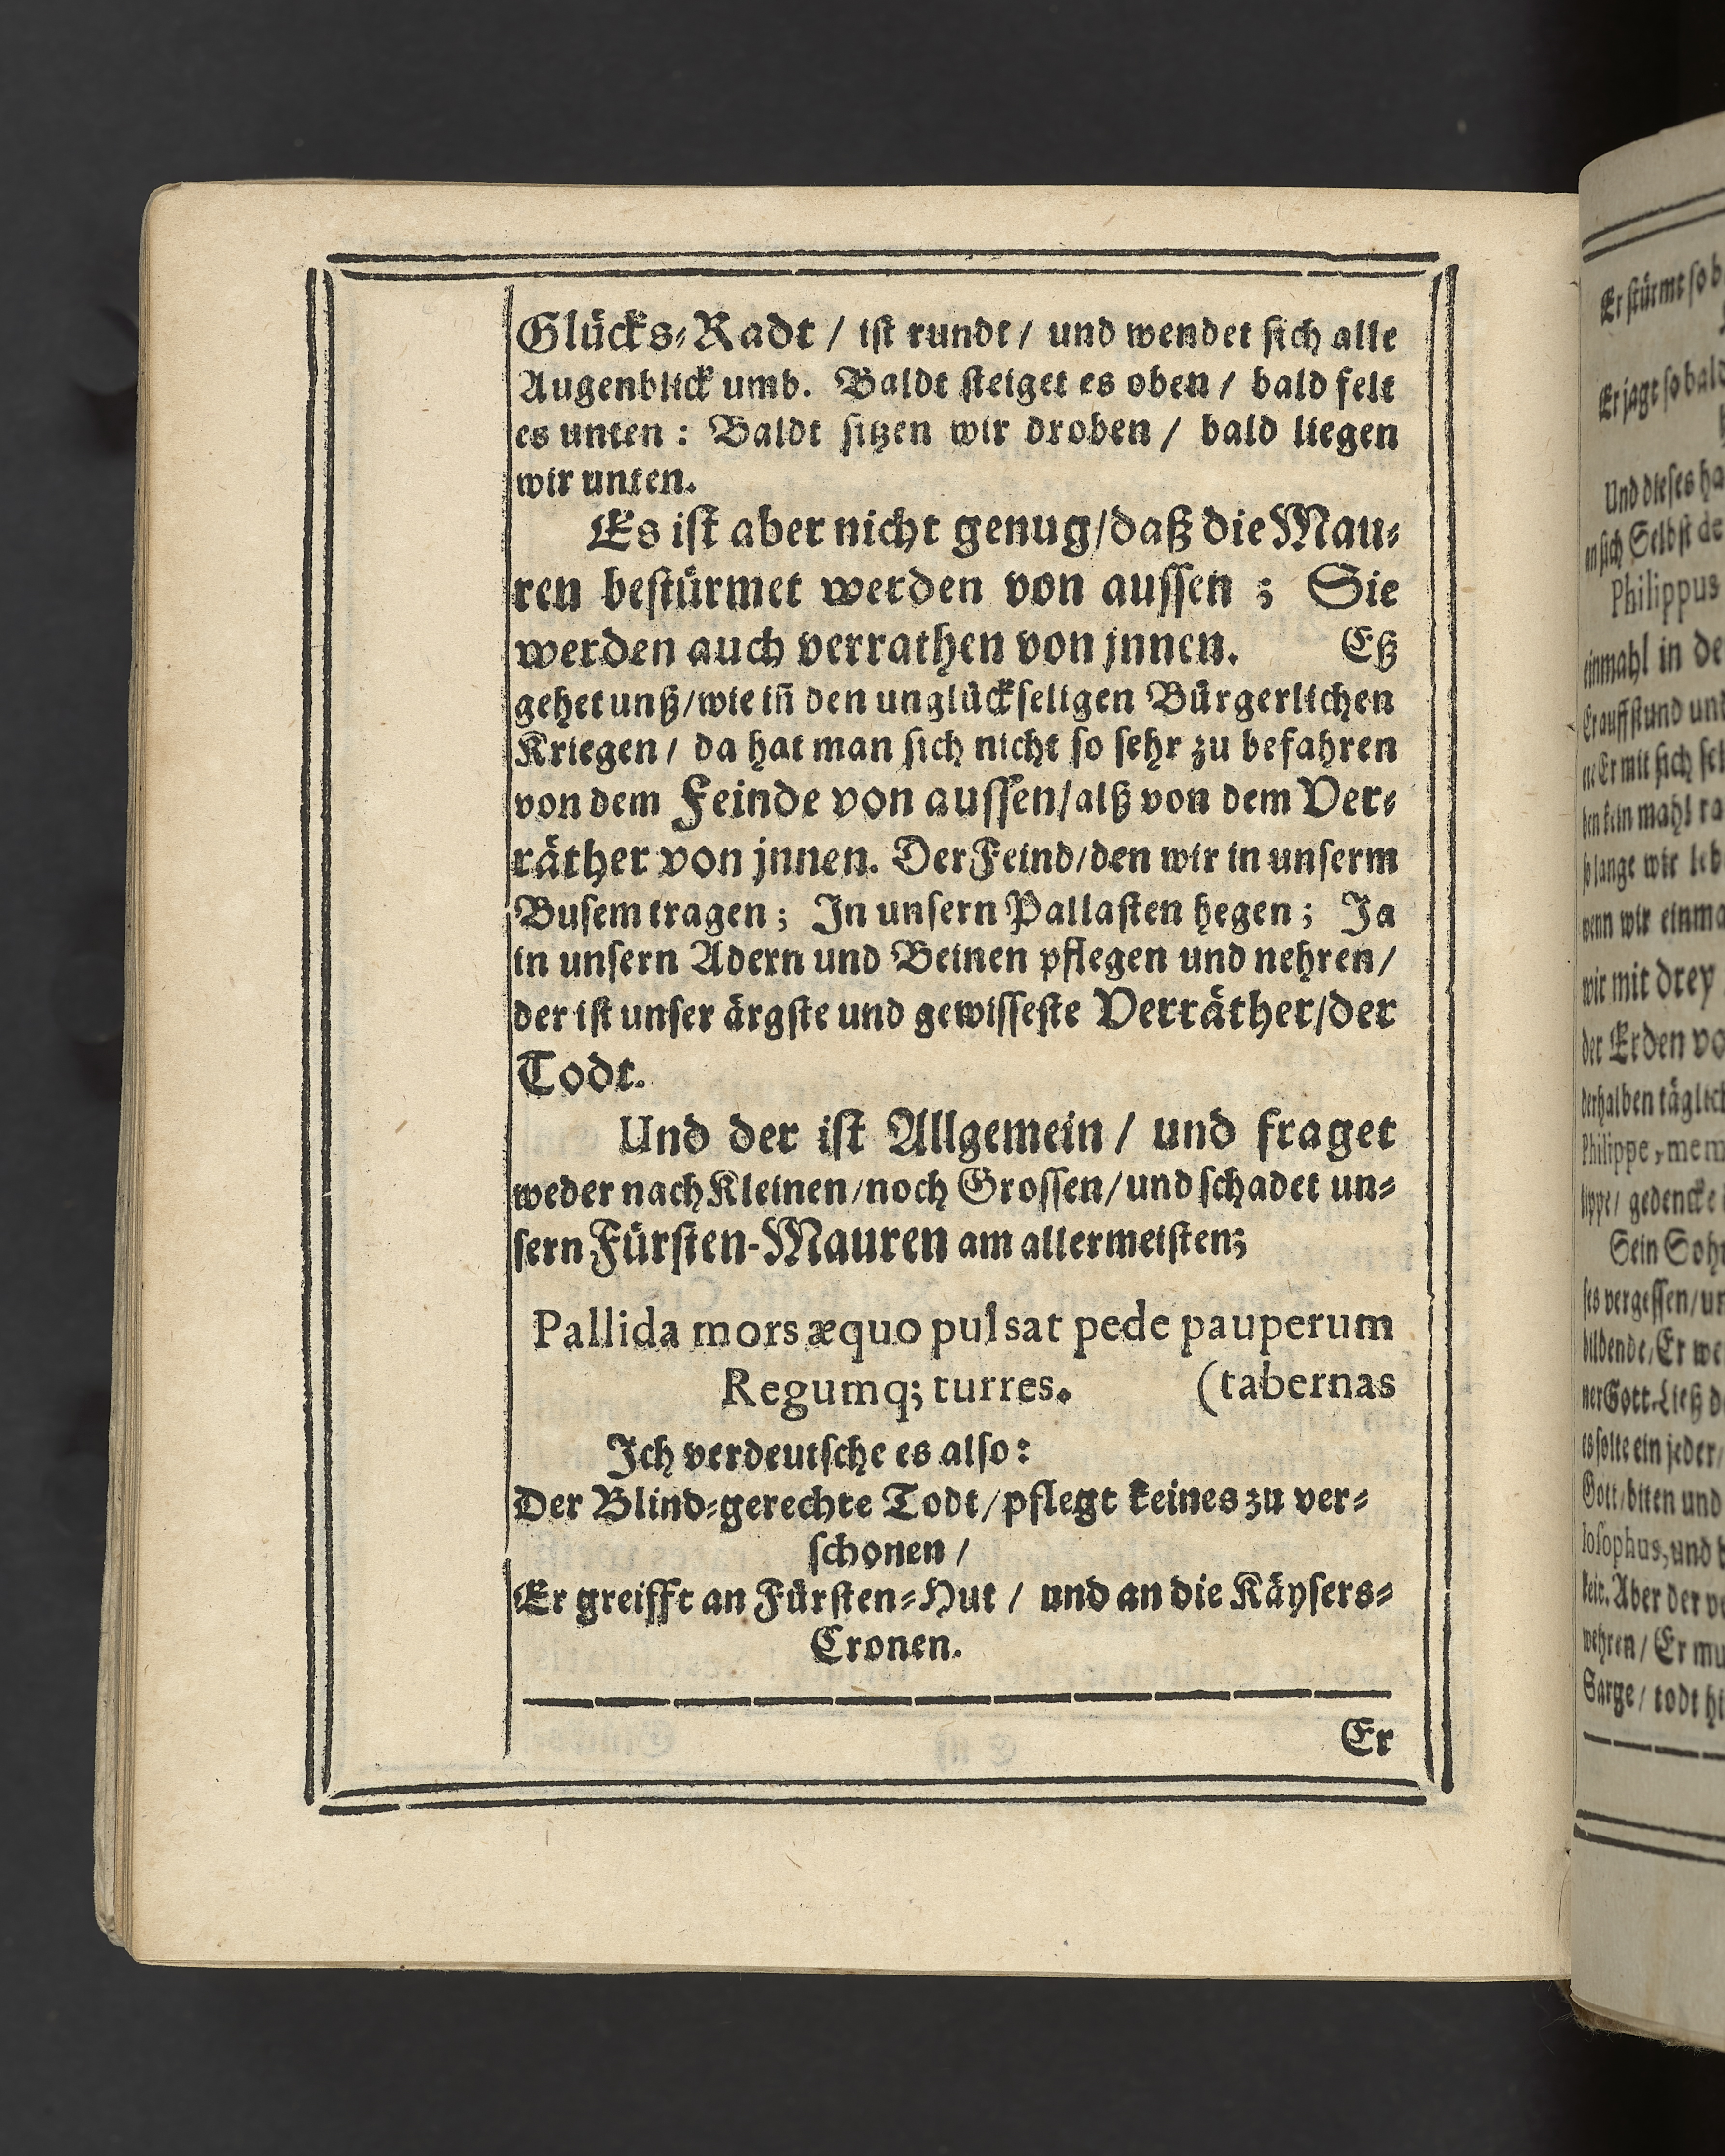 Glücks-Radt / ist rundt / und wendet sich alle
Augenblick umb. Baldt steiget es oben / bald felt
es unten : Baldt sitzen wir droben / bald liegen
wir unten.
Es ist aber nicht genug/daß die Mau-
ren bestürmet werden von aussen ; Sie
werden auch verrathen von jnnen. Eß
gehet unß/wie in den unglückseligen Bürgerlichen
Kriegen / da hat man sich nicht so sehr zu befahren
von dem Feinde von aussen/alß von dem Ver-
räther von jnnen. Der Feind/den wir in unserm
Busem tragen ; In unsern Pallasten hegen ; Ja
in unsern Adern und Beinen pflegen und nehren/
der ist unser ärgste und gewisseste Verräther/der
Todt.
Und der ist Allgemein / und fraget
weder nach Kleinen/noch Grossen/und schadet un-
sern Fürsten-Mauren am allermeisten;
Pallida mors æquo pulsat pede pauperum
Regumq; turres. (tabernas
Ich verdeutsche es also :
Der Blind-gerechte Todt/pflegt keines zu ver-
schonen /
Er greifft an Fürsten-Hut / und an die Käysers-
Cronen.
Er
Er stürmt so b
Er jagt so bald
Und dieses ha
an sich Selbst de
Philippus
einmahl in de
Er auffstund und
ne Er mit sich sel
den kein mahl ra
so lange wir leb
wenn wir einma
wir mit drey
der Erden vo
derhalben täglich
Philippe, mem
lippe / gedencke
Sein Sohn
ses vergessen/un
bildende/Er we
ner Gott. Ließ d
es solte ein jeder/
Gott/biten und
losophus, und b
keit. Aber der ve
wehren / Er mu
Sarge / todt hi